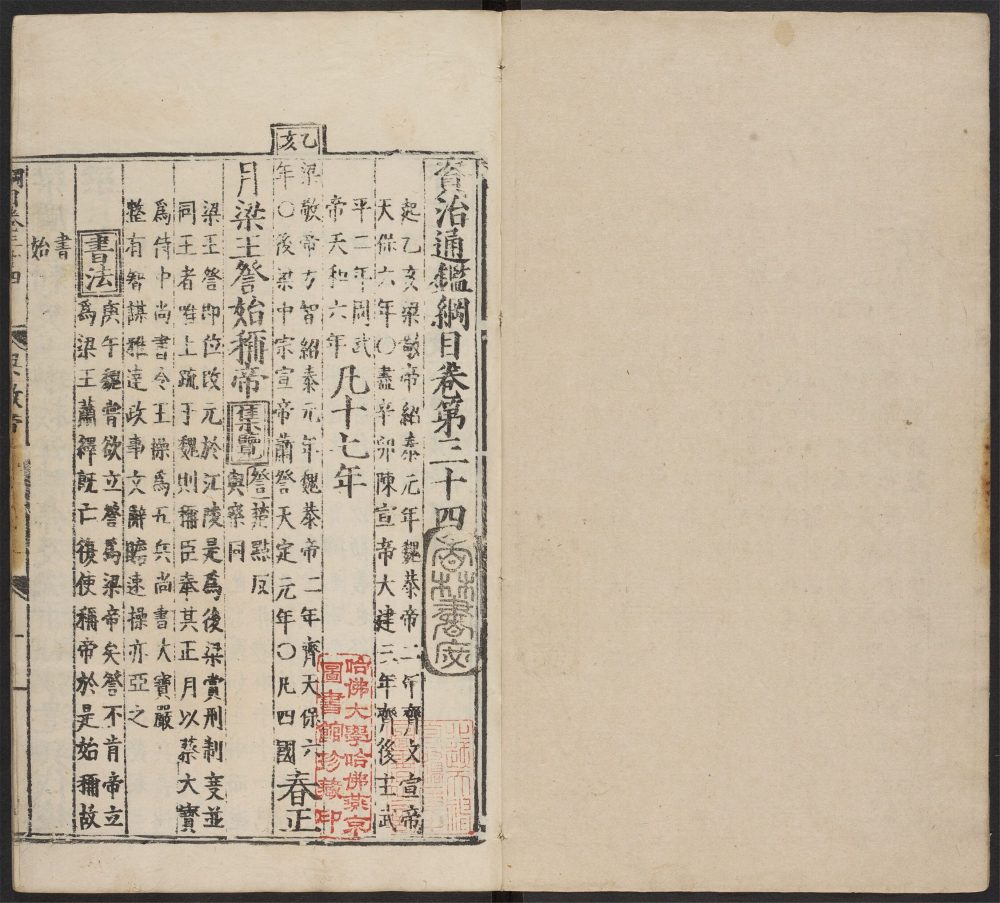 乙亥
資治通鑑綱目卷第三十四
起乙亥梁敬帝紹泰元年魏恭帝二年齊文宣帝
天保六年〇盡辛卯陳宣帝大建三年齊後主武
平二年周武
帝天和六年
凡十七年
梁敬帝方智紹泰元年魏恭帝二年齊天保六
年〇後梁中宗宣帝蕭詧天定元年〇凡四國
春正
月梁王詧始稱帝
集覽
詧楚點反
與察同
梁王詧即位改元於江陵是爲後梁賞刑制度並
同王者唯上疏于魏則稱臣奉其正月以蔡大寶
爲侍中尚書令王操爲五兵尚書大寶嚴
整有智謀雅達政事文辭贍速操亦亞之
書法
庚午魏嘗欲立詧爲梁帝矣詧不肯帝立
爲梁王蕭繹既亡復使稱帝於是始稱故
書
始
哈佛大學哈佛燕京
圖書館珍藏印